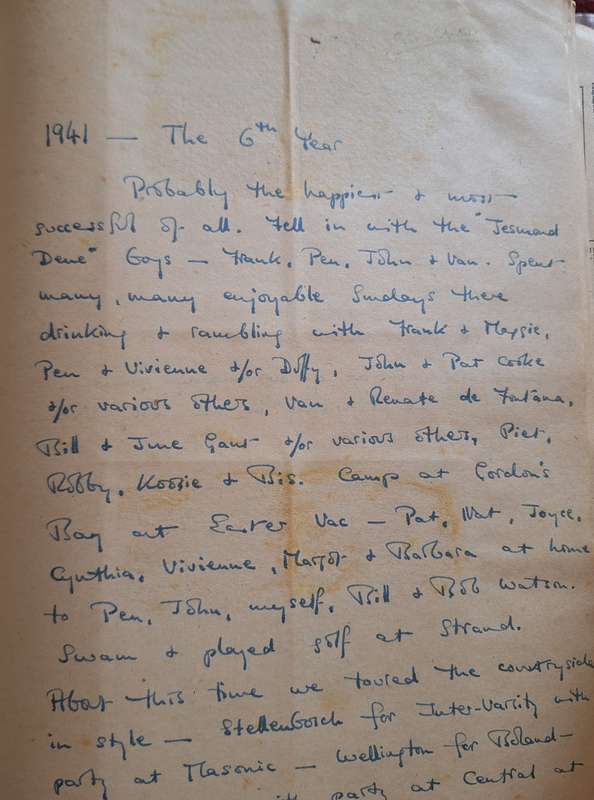 1941 — The 6th Year
Probably the happiest & most
successful of all. Fell in with the "Jesmond
Dene" Guys — Frank, Pen, John & Van. Spent
many, many enjoyable Sundays there
drinking & rambling with Frank & Maggie,
Pen & Vivienne &/or Duffy, John & Pat Cooke
&/or various others, Van & Renate de Fontana,
Bill & June Gant &/or various others, Piet,
Robby, Koosie & Bis. Camp at Gordon's
Bay at Easter Vac — Pat, Nat, Joyce,
Cynthia, Vivienne, & Barbara at home
to Pen, John, myself, Bill & Bob Watson.
Swam & played golf at Strand.
About this time we toured the countryside
in style — Stellenbosch for Inter-Varsity with
party at Masonic — Wellington for Boland —
party at Central at